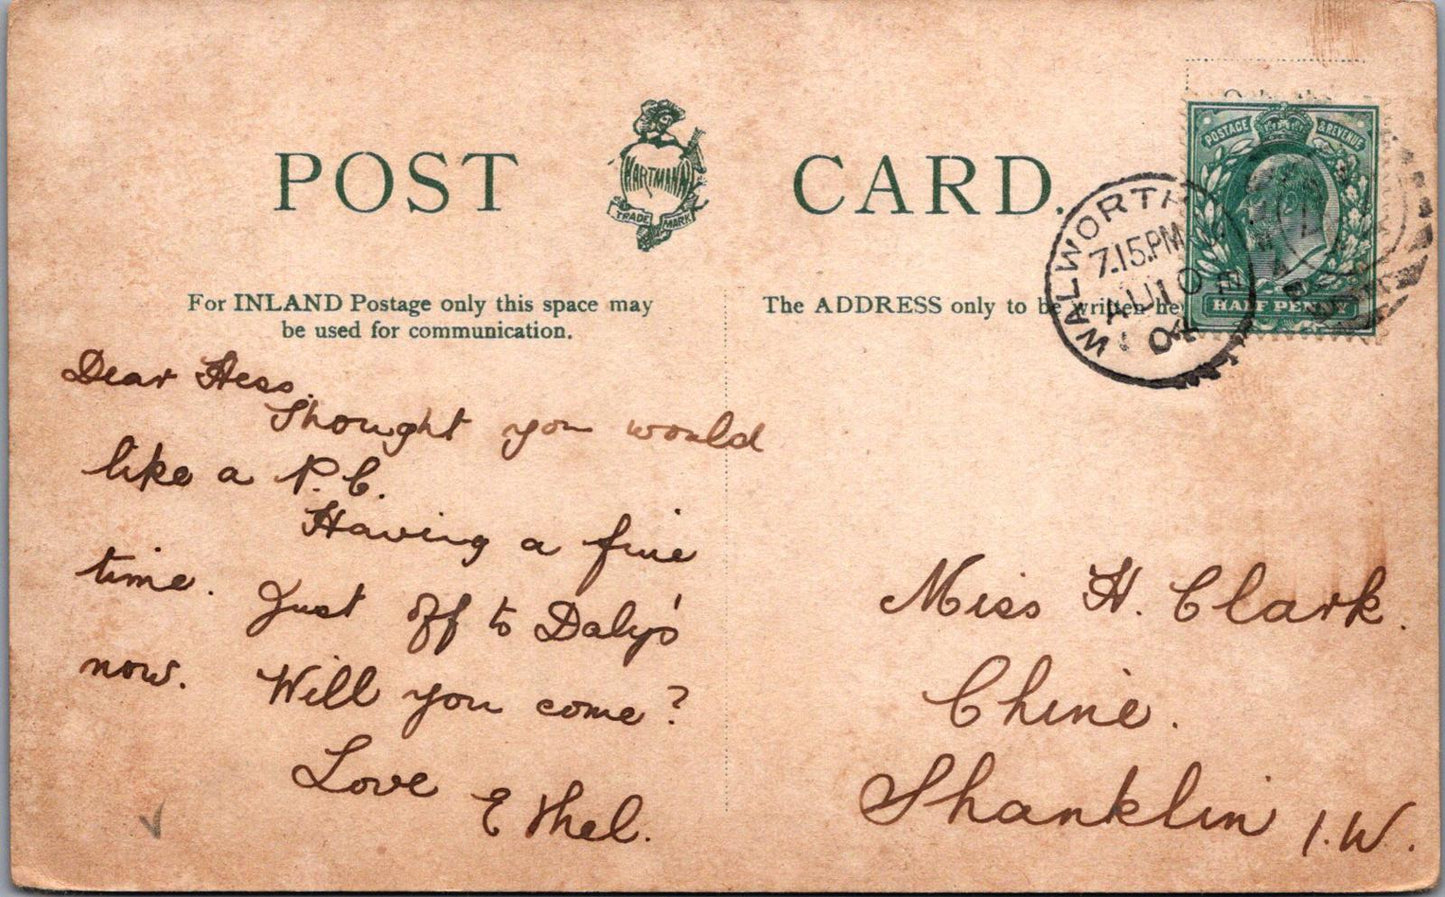 POST CARD.
HARTMANN
TRADE MARK
For INLAND Postage only this space may
be used for communication.
The ADDRESS only to be written he
Only the
POSTAGE & REVENUE
HALF PENNY
WALWORTH
7.15 PM
AU 10
04
Dear Hess.
Thought you would
like a P.C.
Having a fine
time. Just off to Daly's
now. Will you come?
Love Ethel.
Miss H. Clark.
Chine.
Shanklin I.W.